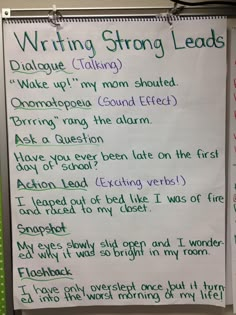 Writing Strong Leads
Dialogue (Talking)
"Wake up!" my mom shouted.
Onomatopoeia (Sound Effect)
"Brrring" rang the alarm.
Ask a Question
Have you ever been late on the first
day of school?
Action Lead (Exciting verbs!)
I leaped out of bed like I was of fire
and raced to my closet.
Snapshot
My eyes slowly slid open and I wonder-
ed why it was so bright in my room.
Flashback
I have only overslept once, but it turn
ed into the worst morning of my life!